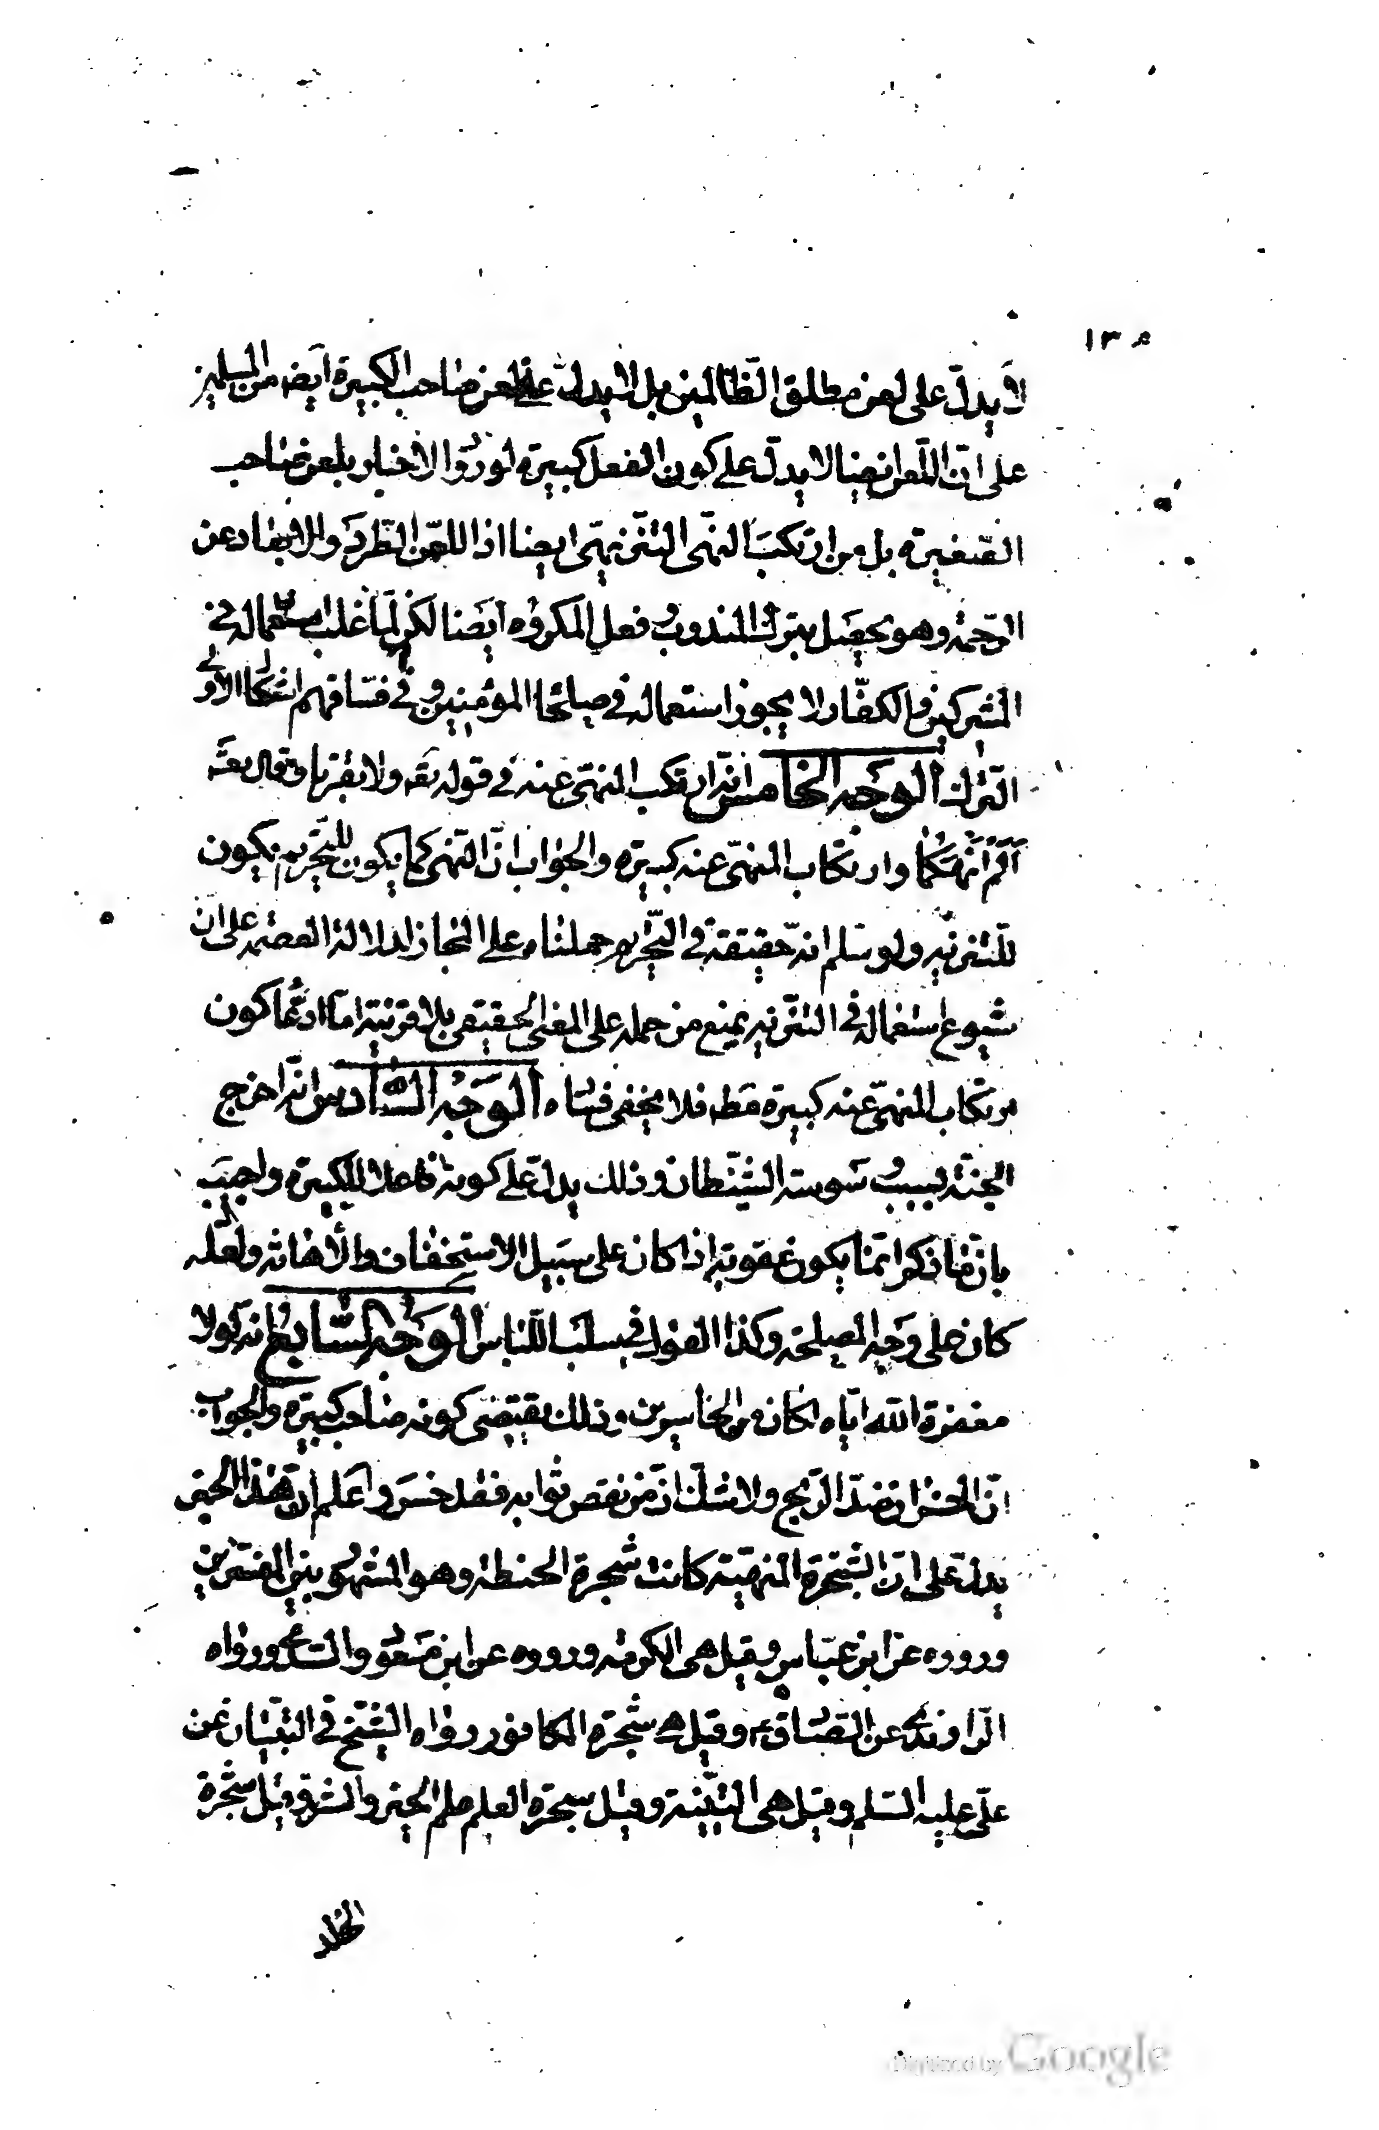 ١٣٠
لا يدلّ على لعن مطلق الظالمين بل لا يدل على لعن صاحب الكبيرة ايضا من المسلمين
على انّ اللّعن ايضا لا يدلّ على كون الفعل كبيرة لورود الاخبار بلعن صاحب
الصّغيرة بل من ارتكب النهى التنزيهى ايضا اذ اللعن الطّرد والابعاد عن
الرّحمة وهو يحصل بترك المندوب وفعل المكروه ايضا لكن لمّا غلب استعماله فى
المشركين والكفّار لا يجوز استعماله فى صلحاء المؤمنين وفى فسّاقهم اشكال والاولى
التّرك الوجه الخامس انّه ارتكب المنهىّ عنه فى قوله تعه ولا تقربا وقال تعه
ألم أنهكما وارتكاب المنهىّ عنه كبيرة والجواب انّ النّهى كما يكون للتّحريم يكون
للتّنزيه ولو سلّم انّه حقيقة فى التّحريم حملناه على المجاز لدلالة العصمة على ان
شيوع استعماله فى التنزيه يمنع من حمله على المعنى الحقيقى بلا قرينة امّا ادّعاء كون
مرتكب المنهىّ عنه كبيرة مطه فلا يخفى فساده الوجه السّادس انّه اخرج
الجنّة بسبب وسوسة الشّيطان وذلك يدلّ على كونه فاعلا للكبيرة واجيب
بانّ ما ذكر انّما يكون عقوبة اذا كان على سبيل الاستخفاف والاهانة ولعلّه
كان على وجه المصلحة وكذا القول فى سلب اللّباس الوجه السّابع انّه لولا
مغفرة الله ايّاه لكان من الخاسرين وذلك يقتضى كونه صاحب كبيرة والجواب
انّ الخسران ضدّ الرّبح ولا شك انّ من نقص ثوابه فقد خسر واعلم انّ هذا الخبر
يدلّ على انّ الشّجرة المنهيّة كانت شجرة الحنطة وهو المشهور بين المفسّرين
ورووه عن ابن عبّاس وقيل هى الكرمة ورووه عن ابن مسعود والسّدى ورواه
الرّاوندى عن الصّادق ع وقيل هى شجرة الكافور رواه الشّيخ فى التّبيان عن
علىّ عليه السّلم وقيل هى التّينة وقيل شجرة العلم علم الخير والشر وقيل شجرة
الخلد
Digitized by Google